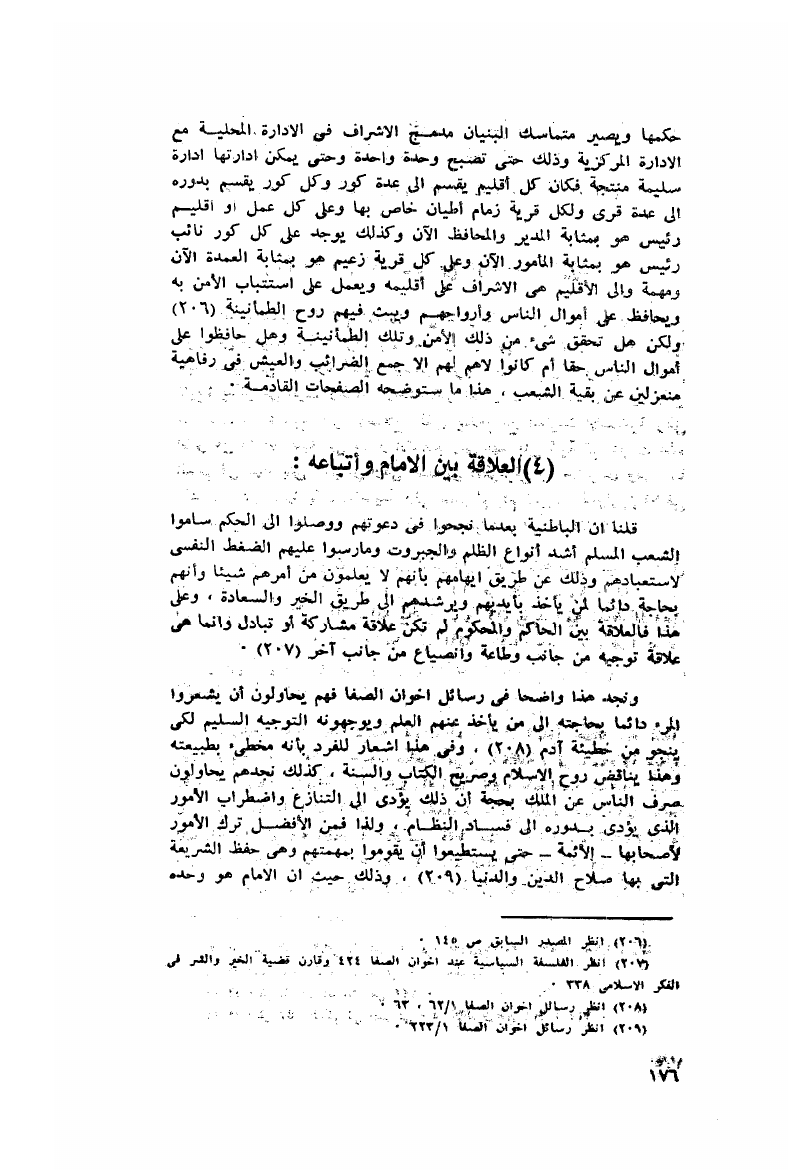 حكمها ويصير متماسك البنيان مدمج الاشراف فى الادارة المحلية مع
الادارة المركزية وذلك حتى تصبح وحدة واحدة وحتى يمكن ادارتها ادارة
سليمة منتجة فكان كل أقليم يقسم الى عدة كور وكل كور يقسم بدوره
الى عدة قرى ولكل قرية زمام أطيان خاص بها وعلى كل عمل او اقليم
رئيس هو بمثابة المدير والمحافظ الآن وكذلك يوجد على كل كور نائب
رئيس هو بمثابة المأمور الآن وعلى كل قرية زعيم هو بمثابة العمدة الآن
ومهمة والى الأقليم هى الاشراف على أقليمه ويعمل على استتباب الأمن به
ويحافظ على أموال الناس وأرواحهم ويبث فيهم روح الطمأنينة (٢٠٦)
ولكن هل تحقق شىء من ذلك الأمن وتلك الطمأنينة وهل حافظوا على
أموال الناس حقا أم كانوا لاهم لهم الا جمع الضرائب والعيش فى رفاهية
منعزلين عن بقية الشعب ، هذا ما ستوضحه الصفحات القادمة ٠
(٤) العلاقة بين الامام وأتباعه :
قلنا ان الباطنية بعدما نجحوا فى دعوتهم ووصلوا الى الحكم ساموا
الشعب المسلم أشد أنواع الظلم والجبروت ومارسوا عليهم الضغط النفسى
لاستعبادهم وذلك عن طريق ايهامهم بأنهم لا يعلمون من أمرهم شيئا وأنهم
بحاجة دائما لمن يأخذ بأيديهم ويرشدهم الى طريق الخير والسعادة ، وعلى
هذا فالعلاقة بين الحاكم والمحكوم لم تكن علاقة مشاركة أو تبادل وانما هى
علاقة توجيه من جانب وطاعة وانصياع من جانب آخر (٢٠٧) ٠
ونجد هذا واضحا فى رسائل اخوان الصفا فهم يحاولون أن يشعروا
المرء دائما بحاجته الى من يأخذ عنهم العلم ويوجهونه التوجيه السليم لكى
ينجو من خطيئة آدم (٢٠٨) ، وفى هذا اشعار للفرد بأنه مخطىء بطبيعته
وهذا يناقض روح الاسلام وصريح الكتاب والسنة ، كذلك نجدهم يحاولون
صرف الناس عن الملك بحجة أن ذلك يؤدى الى التنازع واضطراب الأمور
الذى يؤدى بدوره الى فساد النظام ، ولذا فمن الأفضل ترك الأمور
لأصحابها – الأئمة – حتى يستطيعوا أن يقوموا بمهمتهم وهى حفظ الشريعة
التى بها صلاح الدين والدنيا (٢٠٩) ، وذلك حيث ان الامام هو وحده
(٢٠٦) انظر المصدر السابق ص ١٤٥ ٠
(٢٠٧) انظر الفلسفة السياسية عند اخوان الصفا ٤٢٤ وقارن قضية الخير والشر فى
الفكر الاسلامى ٣٣٨ ٠
(٢٠٨) انظر رسائل اخوان الصفا ٦٢/١ ، ٦٣ ٠
(٢٠٩) انظر رسائل اخوان الصفا ٢٢٣/١ ٠
١٧٦